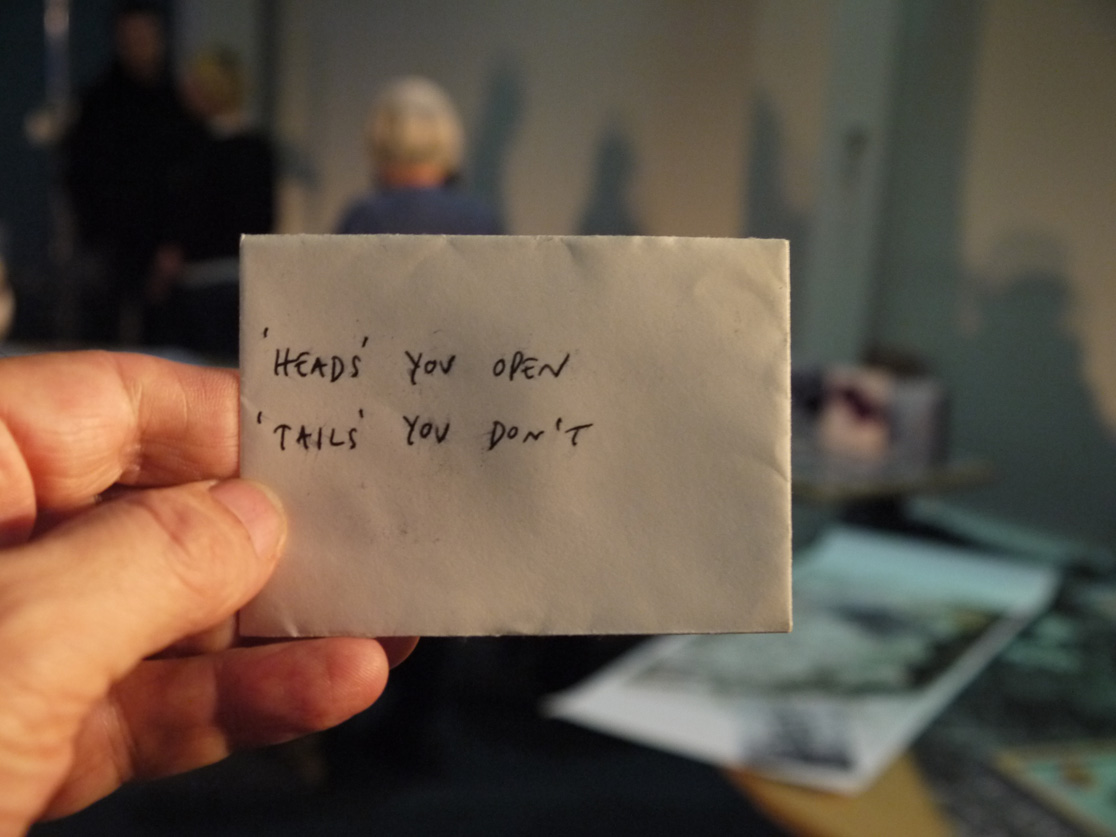 'HEADS' YOU OPEN
'TAILS' YOU DON'T